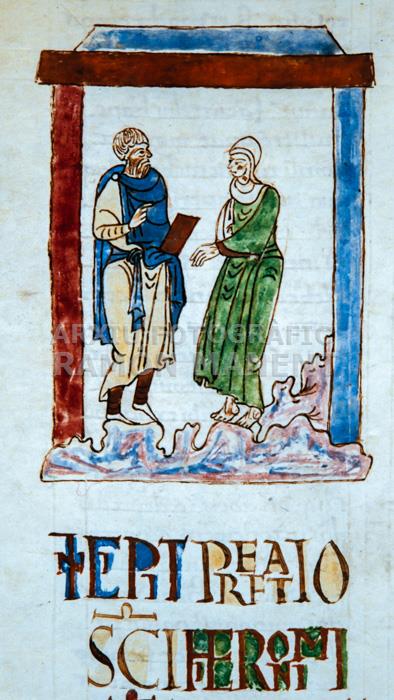 ARXIU FOTOGRÀFIC
RAMON MANENT
INCIPIT PREFATIO
SCI HIERONIMI